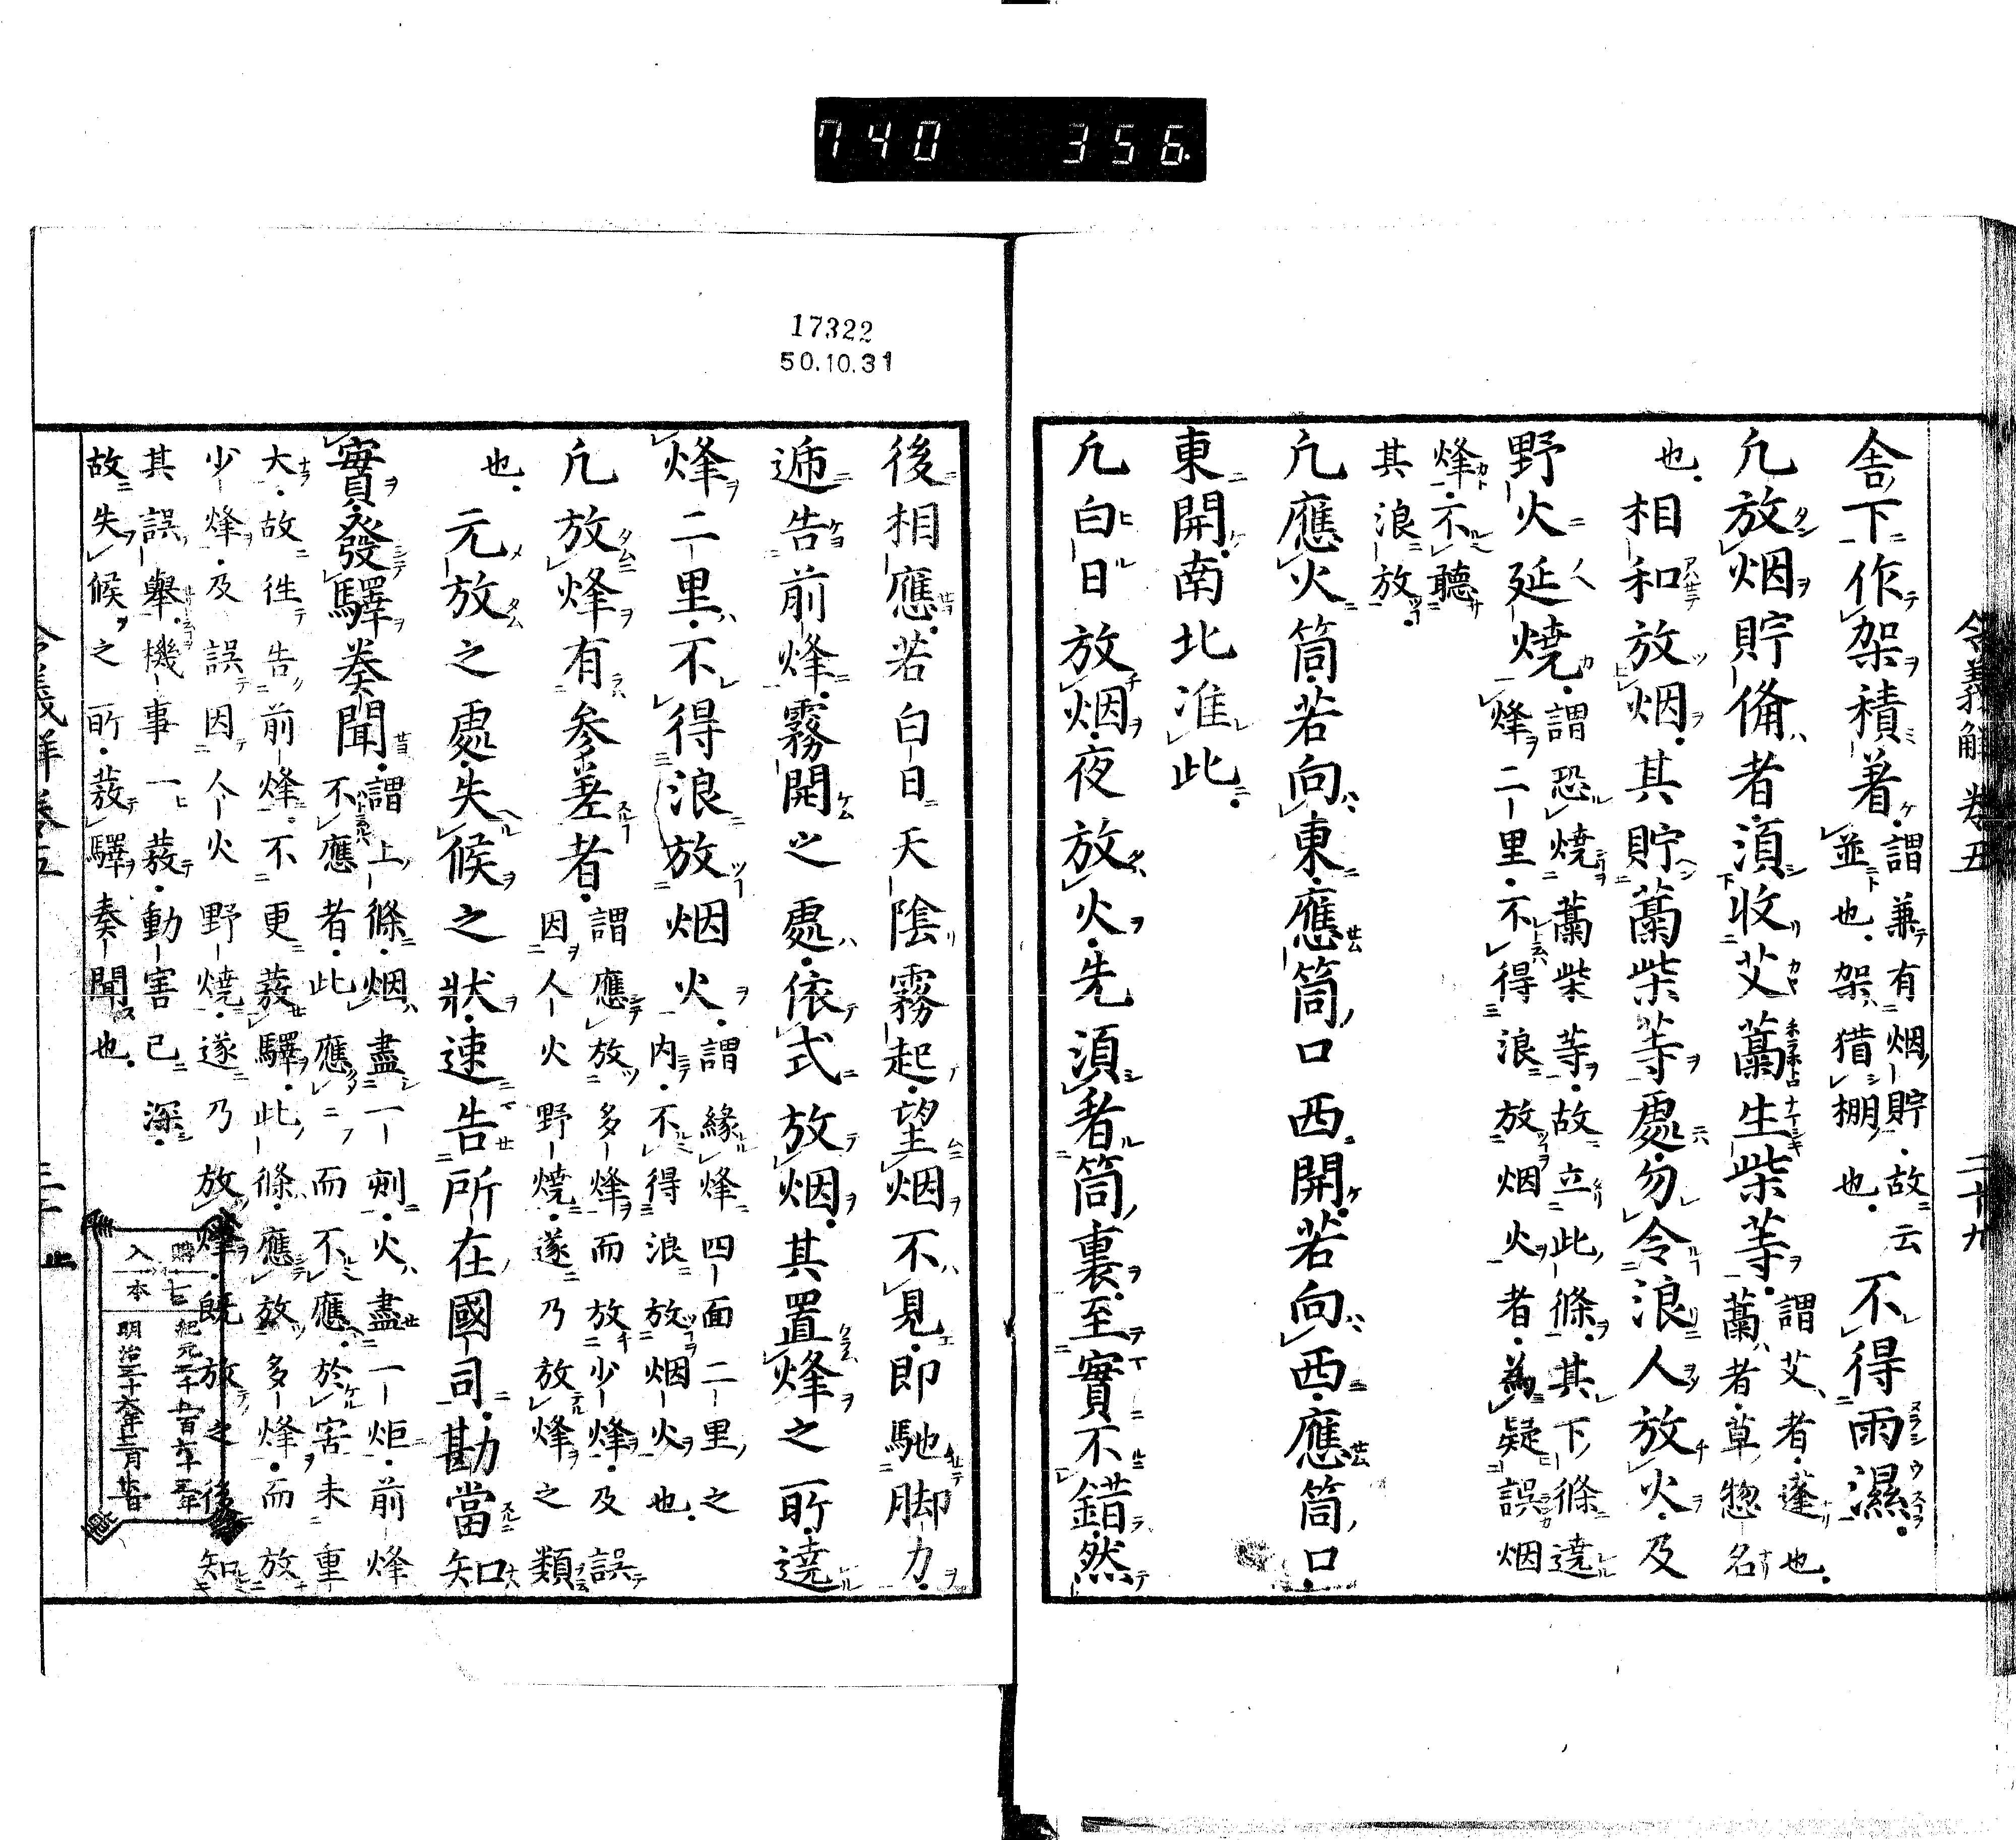 740 356
17322
50.10.31
令義解 卷五 二十九
舎下作架積著。謂兼有烟貯。故云
並也。架猎棚也。不得雨濕。
凢放烟貯備者。湏收艾藁生柴等。謂艾者。蓬也。
藁者。草惣名
也。相和放烟。其貯藁柴等處。勿令浪人放火。及
野火延燒。謂恐燒藁柴等。故立此條。其下條遶
烽二里。不得浪放烟火者。為疑誤烟
烽。不聽
其浪放。
凢應火筒。若向東。應筒口西開。若向西。應筒口
東開。南北准此。
凢白日放烟。夜放火。先湏看筒裏至實不錯。然
後相應。若白日天陰霧起。望烟不見。即馳脚力。
遞告前烽。霧開之處。依式放烟。其置烽之所。遶
烽二里。不得浪放烟火。謂緣烽四面二里之
内。不得浪放烟火也。
凢放烽有參差者。謂應放多烽而放少烽。及誤
因人火野燒。遂乃放烽之類
也。元放之處。失候之狀。速告所在國司。勘當知
實。發驛奏聞。謂上條烟盡一剋。火盡一炬。前烽
不應者。此應二而不應。於害未重
大。故徃告前烽。不更發驛。此條應放多烽。而放
少烽。及誤因人火野燒。遂乃放烽。既放之後知
其誤舉。機事一發。動害已深。
故失候之所。發驛奏聞也。
令義解 卷五 三十
購入本
明治三十六年三月